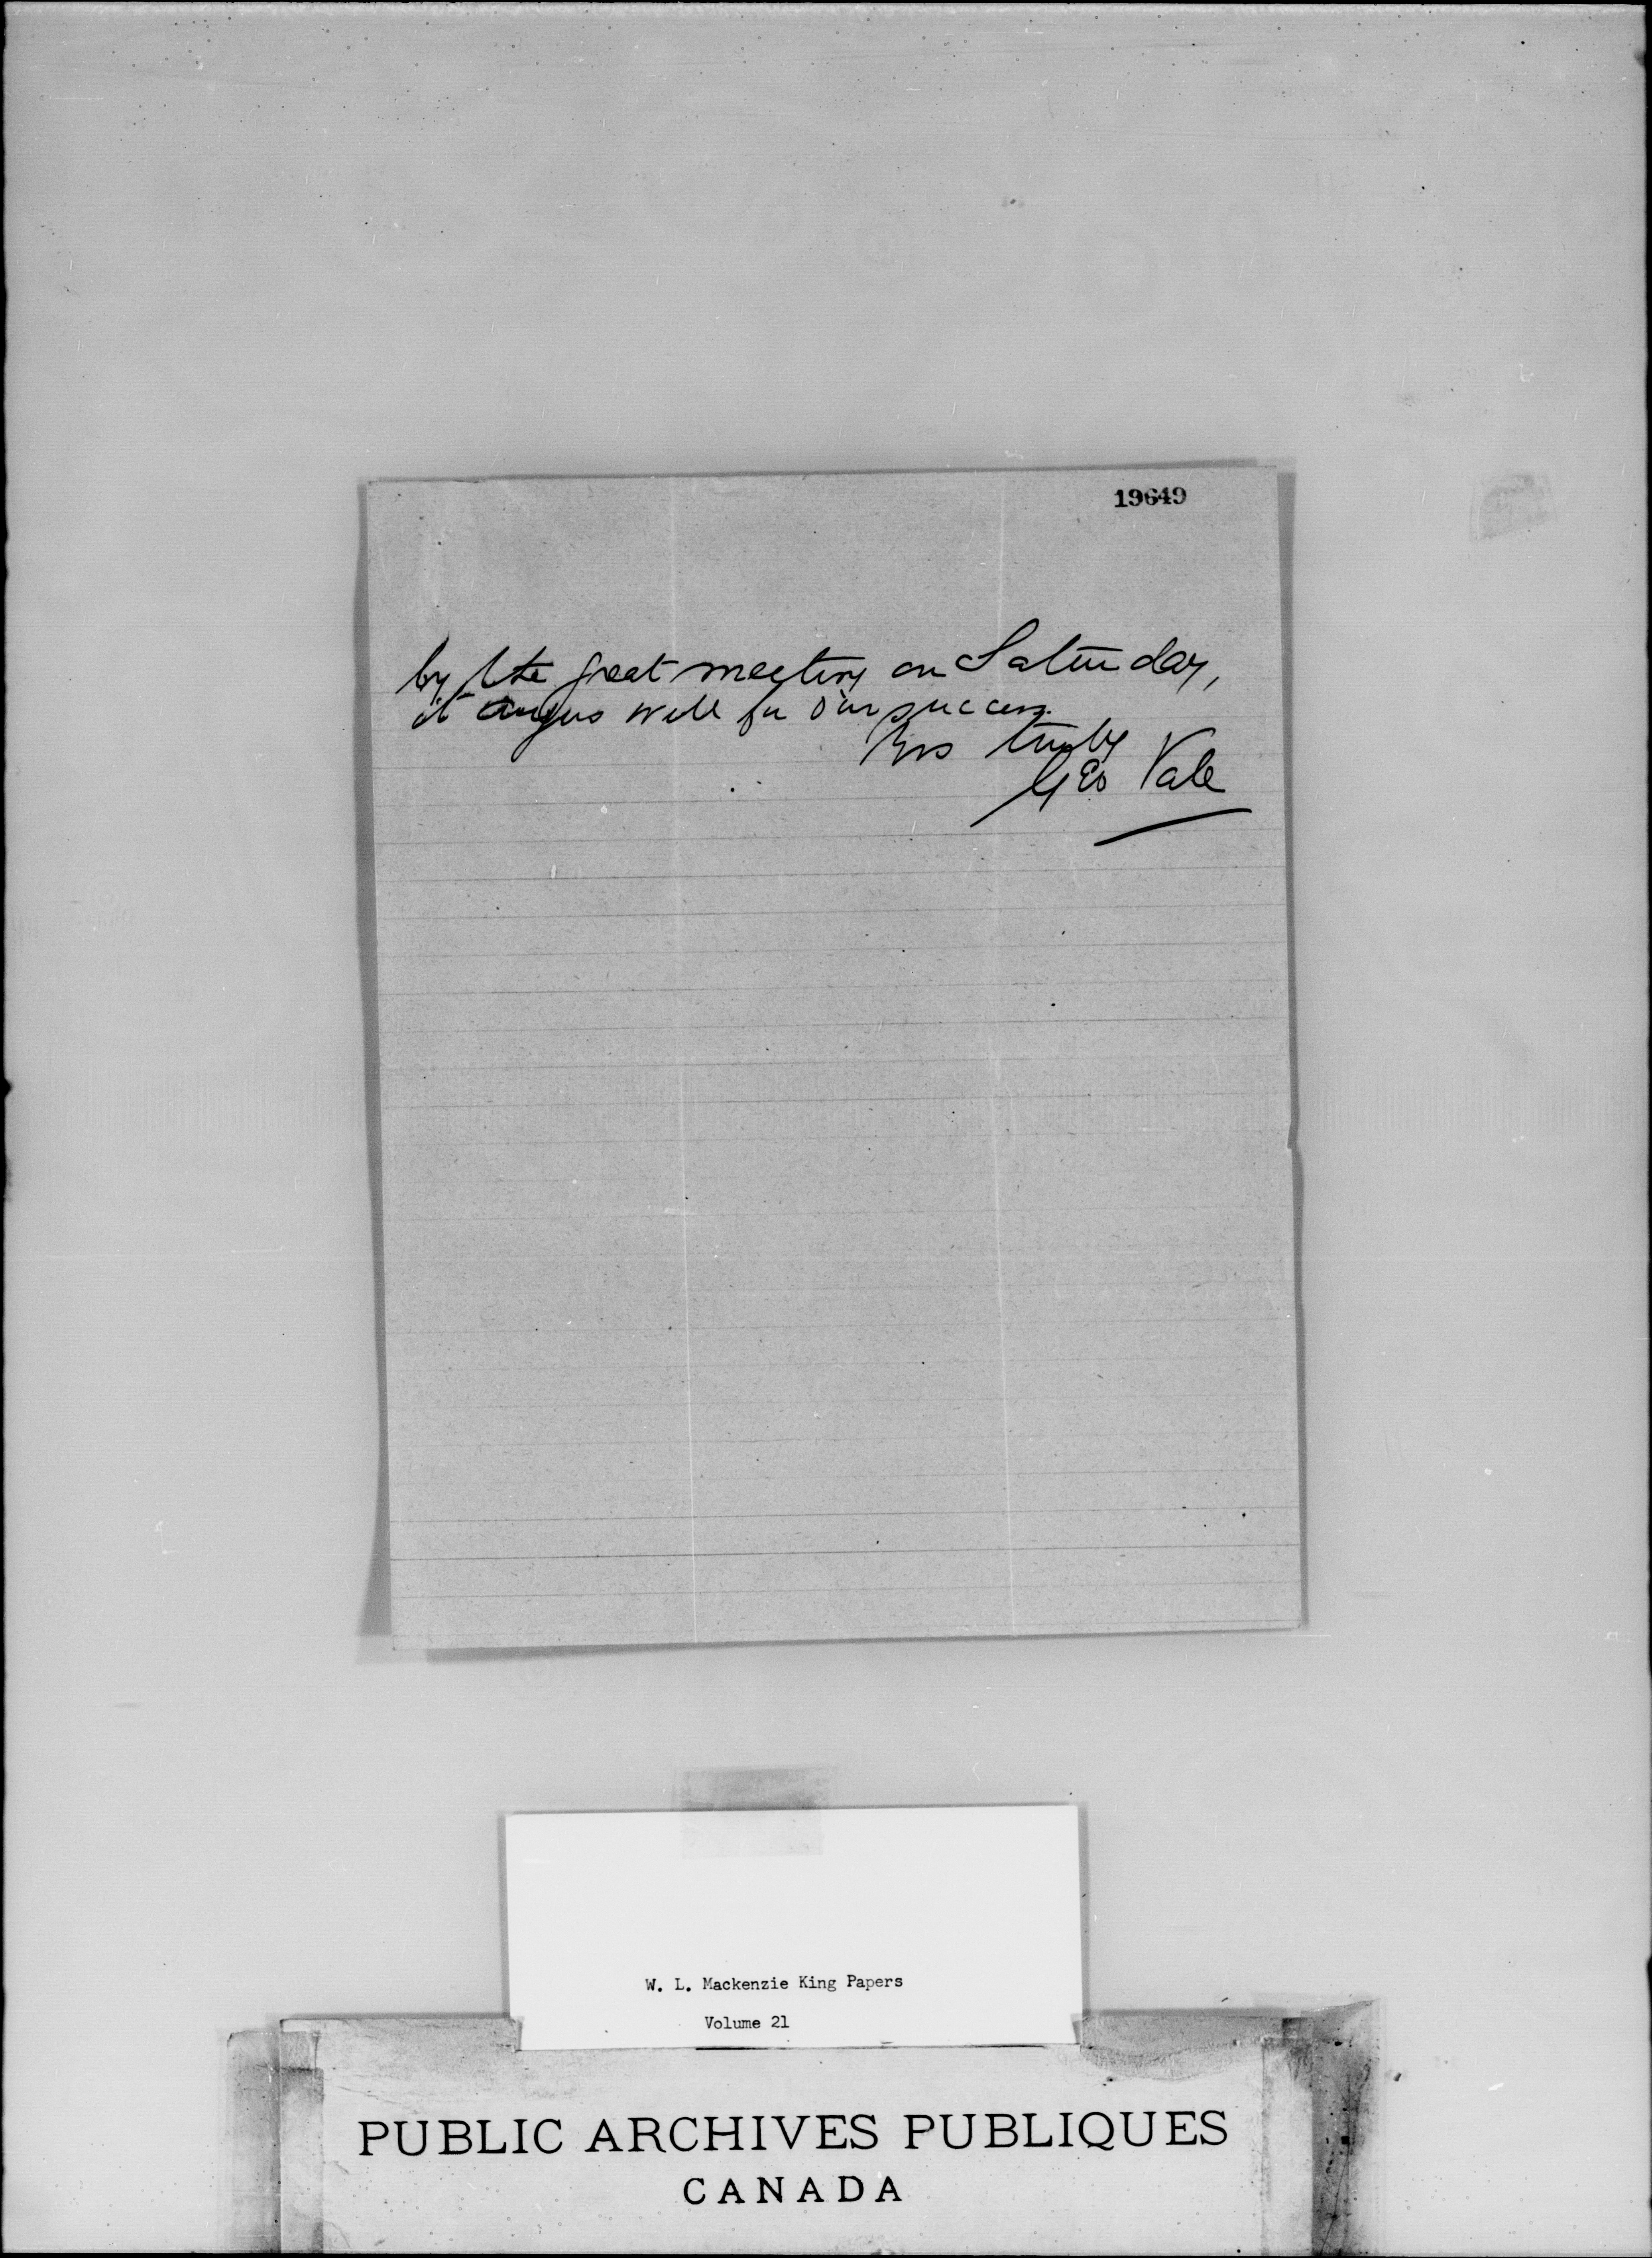 19649
by the great meeting on Saturday,
it augurs well for our success.
Yrs truly
Geo Vale
W. L. Mackenzie King Papers
Volume 21
PUBLIC ARCHIVES PUBLIQUES
CANADA